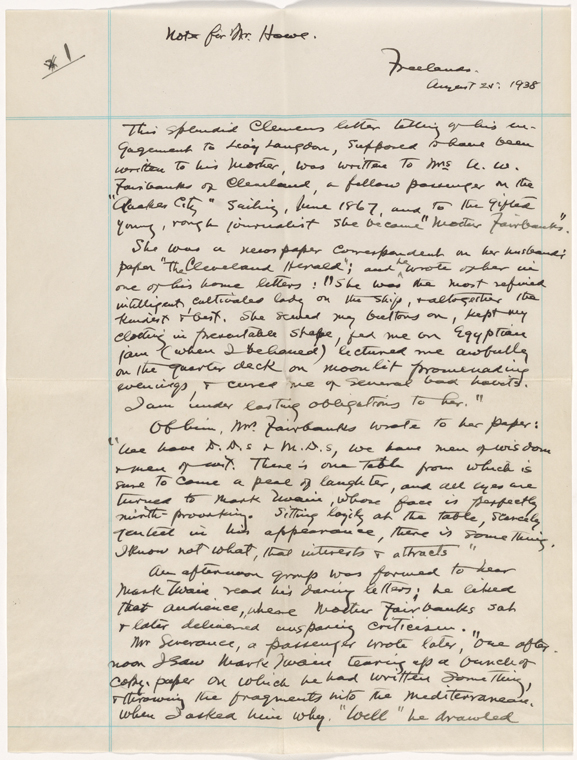 Note for Mr. Howe.
# 1
Freelands.
August 24. 1938
This splendid Clemens letter telling of his en-
gagement to Livy Langdon, supposed to have been
written to his Mother, was written to Mrs A. W.
Fairbanks of Cleveland, a fellow passenger on the
"Quaker City" sailing, June 1867, and to the gifted
young, rough journalist she became "Mother Fairbanks".
She was a newspaper correspondent on her husband's
paper "The Cleveland Herald"; and he wrote of her in
one of his home letters: "She was the most refined
intelligent, cultivated lady on the ship, & altogether the
kindest & best. She sewed my buttons on, kept my
clothing in presentable shape, fed me on Egyptian
jam (when I behaved) lectured me awfully
on the quarter deck on moonlit promenading
evenings, & cured me of several bad habits.
I am under lasting obligations to her."
Of him, Mrs. Fairbanks wrote to her paper:
"We have D.D.s & M.D.s, we have men of wisdom
& men of wit. There is one table from which is
sure to come a peal of laughter, and all eyes are
turned to Mark Twain, whose face is perfectly
mirth-provoking. Sitting lazily at the table, scarcely
genteel in his appearance, there is something,
I know not what, that interests & attracts"
An afternoon group was formed to hear
Mark Twain read his daring letters; he liked
that audience, where Mother Fairbanks sat
& later delivered unsparing criticism.
Mr Severance, a passenger wrote later, "One after-
noon I saw Mark Twain tearing up a bunch of
copy-paper on which he had written something,
& throwing the fragments into the Mediterranean.
When I asked him why. "Well" he drawled